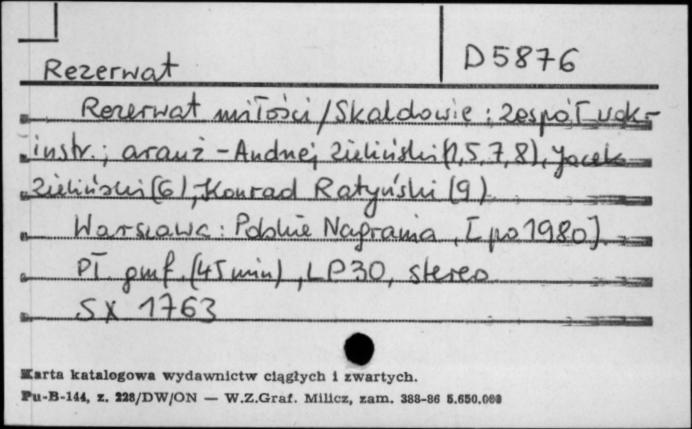 D5876
Rezerwat
Rezerwat miłości / Skaldowie ; zespół wok-
instr. ; aranż - Andrzej Zieliński (1,5,7,8), Jacek
Zieliński (6), Konrad Ratyński (9)
Warszawa : Polskie Nagrania, [po 1980].
Pł. gmf. (45 min), LP30, stereo
SX 1763
Karta katalogowa wydawnictw ciągłych i zwartych.
Pu-B-144, z. 228/DW/ON — W.Z.Graf. Milicz, zam. 388-86 5.650.000